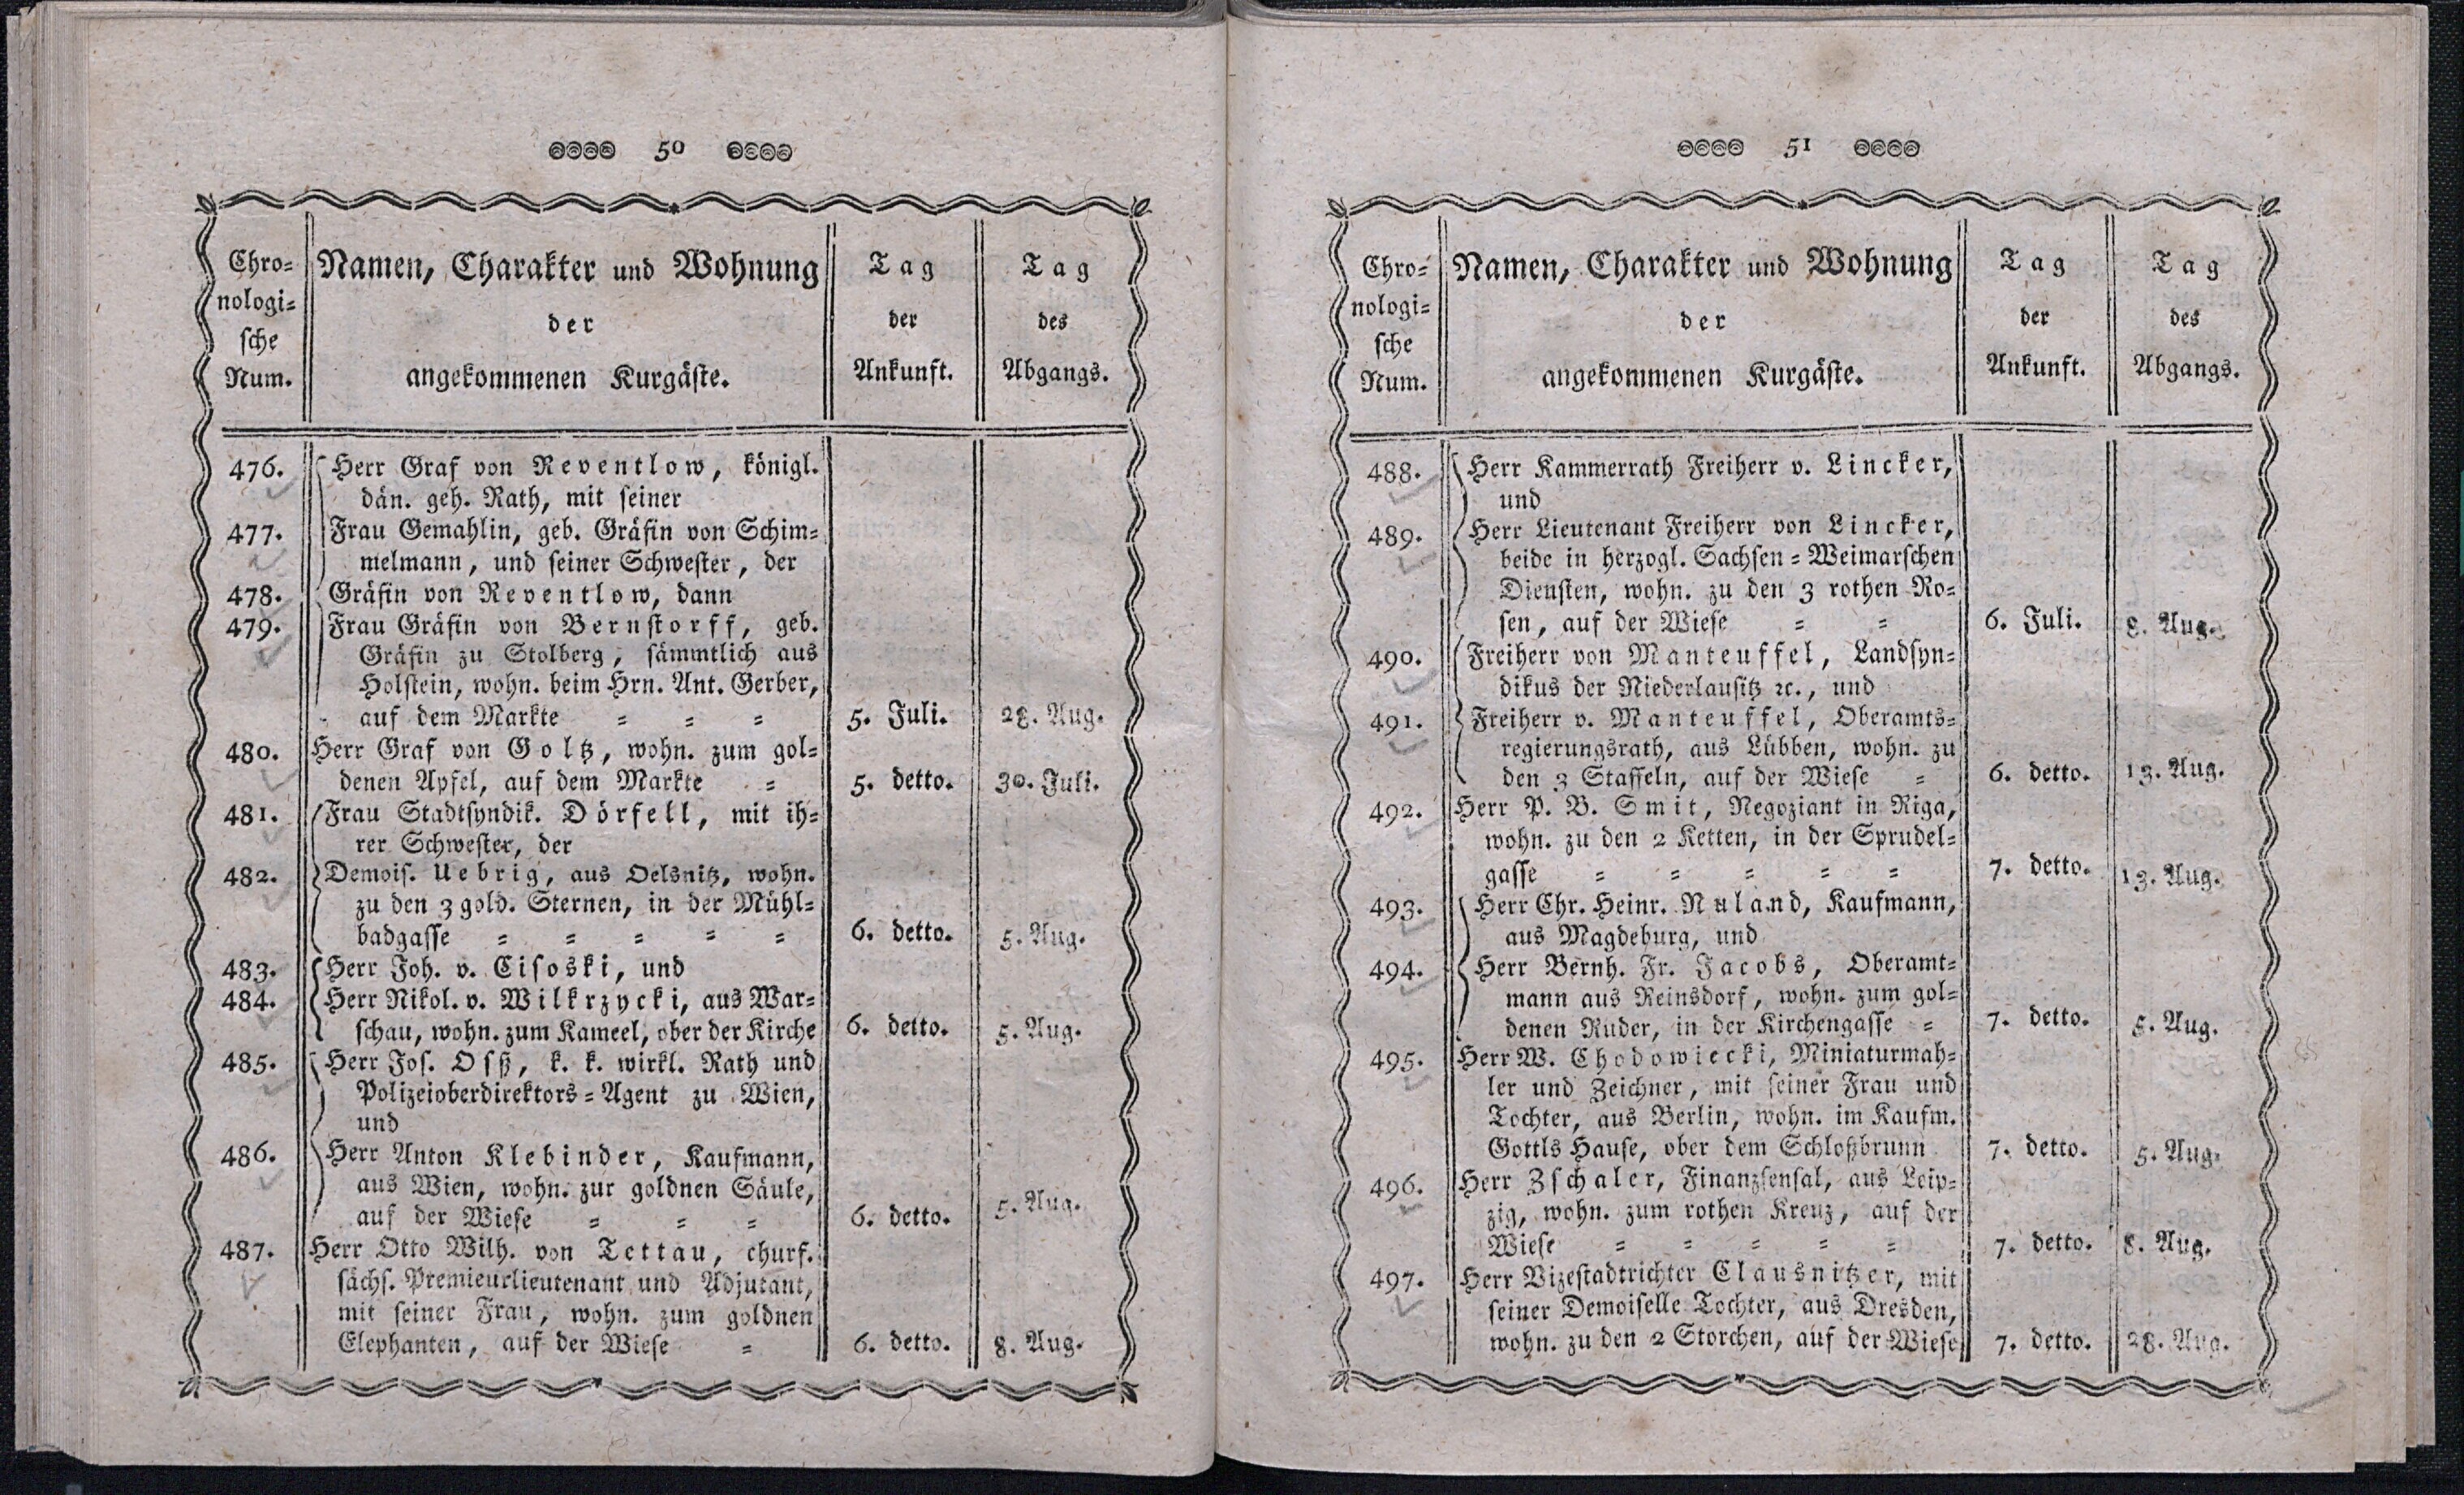 50
Chro-
nologi-
sche
Num.
Namen, Charakter und Wohnung
der
angekommenen Kurgäste.
Tag
der
Ankunft.
Tag
des
Abgangs.
476. Herr Graf von Reventlow, königl.
dän. geh. Rath, mit seiner
477. Frau Gemahlin, geb. Gräfin von Schim-
melmann, und seiner Schwester, der
478. Gräfin von Reventlow, dann
479. Frau Gräfin von Bernstorff, geb.
Gräfin zu Stolberg, sämmtlich aus
Holstein, wohn. beim Hrn. Ant. Gerber,
auf dem Markte = = = 5. Juli. 28. Aug.
480. Herr Graf von Goltz, wohn. zum gol-
denen Apfel, auf dem Markte = 5. detto. 30. Juli.
481. Frau Stadtsyndik. Dörfell, mit ih-
rer Schwester, der
482. Demois. Uebrig, aus Oelsnitz, wohn.
zu den 3 gold. Sternen, in der Mühl-
badgasse = = = = = 6. detto. 5. Aug.
483. Herr Joh. v. Cisoski, und
484. Herr Nikol. v. Wilkrzycki, aus War-
schau, wohn. zum Kameel, ober der Kirche 6. detto. 5. Aug.
485. Herr Jos. Osß, k. k. wirkl. Rath und
Polizeioberdirektors-Agent zu Wien,
und
486. Herr Anton Klebinder, Kaufmann,
aus Wien, wohn. zur goldnen Säule,
auf der Wiese = = = 6. detto. 5. Aug.
487. Herr Otto Wilh. von Tettau, churf.
sächs. Premieurlieutenant und Adjutant,
mit seiner Frau, wohn. zum goldnen
Elephanten, auf der Wiese = 6. detto. 8. Aug.
51
Chro-
nologi-
sche
Num.
Namen, Charakter und Wohnung
der
angekommenen Kurgäste.
Tag
der
Ankunft.
Tag
des
Abgangs.
488. Herr Kammerrath Freiherr v. Lincker,
und
489. Herr Lieutenant Freiherr von Lincker,
beide in herzogl. Sachsen-Weimarschen
Diensten, wohn. zu den 3 rothen Ro-
sen, auf der Wiese = = 6. Juli. 8. Aug.
490. Freiherr von Manteuffel, Landsyn-
dikus der Niederlausitz ꝛc., und
491. Freiherr v. Manteuffel, Oberamts-
regierungsrath, aus Lübben, wohn. zu
den 3 Staffeln, auf der Wiese = 6. detto. 13. Aug.
492. Herr P. B. Smit, Negoziant in Riga,
wohn. zu den 2 Ketten, in der Sprudel-
gasse = = = = = 7. detto. 13. Aug.
493. Herr Chr. Heinr. Ruland, Kaufmann,
aus Magdeburg, und
494. Herr Bernh. Fr. Jacobs, Oberamt-
mann aus Reinsdorf, wohn. zum gol-
denen Ruder, in der Kirchengasse = 7. detto. 8. Aug.
495. Herr W. Chodowiecki, Miniaturmah-
ler und Zeichner, mit seiner Frau und
Tochter, aus Berlin, wohn. im Kaufm.
Gottls Hause, ober dem Schloßbrunn 7. detto. 5. Aug.
496. Herr Zschaler, Finanzsensal, aus Leip-
zig, wohn. zum rothen Kreuz, auf der
Wiese = = = = = 7. detto. 8. Aug.
497. Herr Vizestadtrichter Clausnitzer, mit
seiner Demoiselle Tochter, aus Dresden,
wohn. zu den 2 Storchen, auf der Wiese 7. detto. 28. Aug.